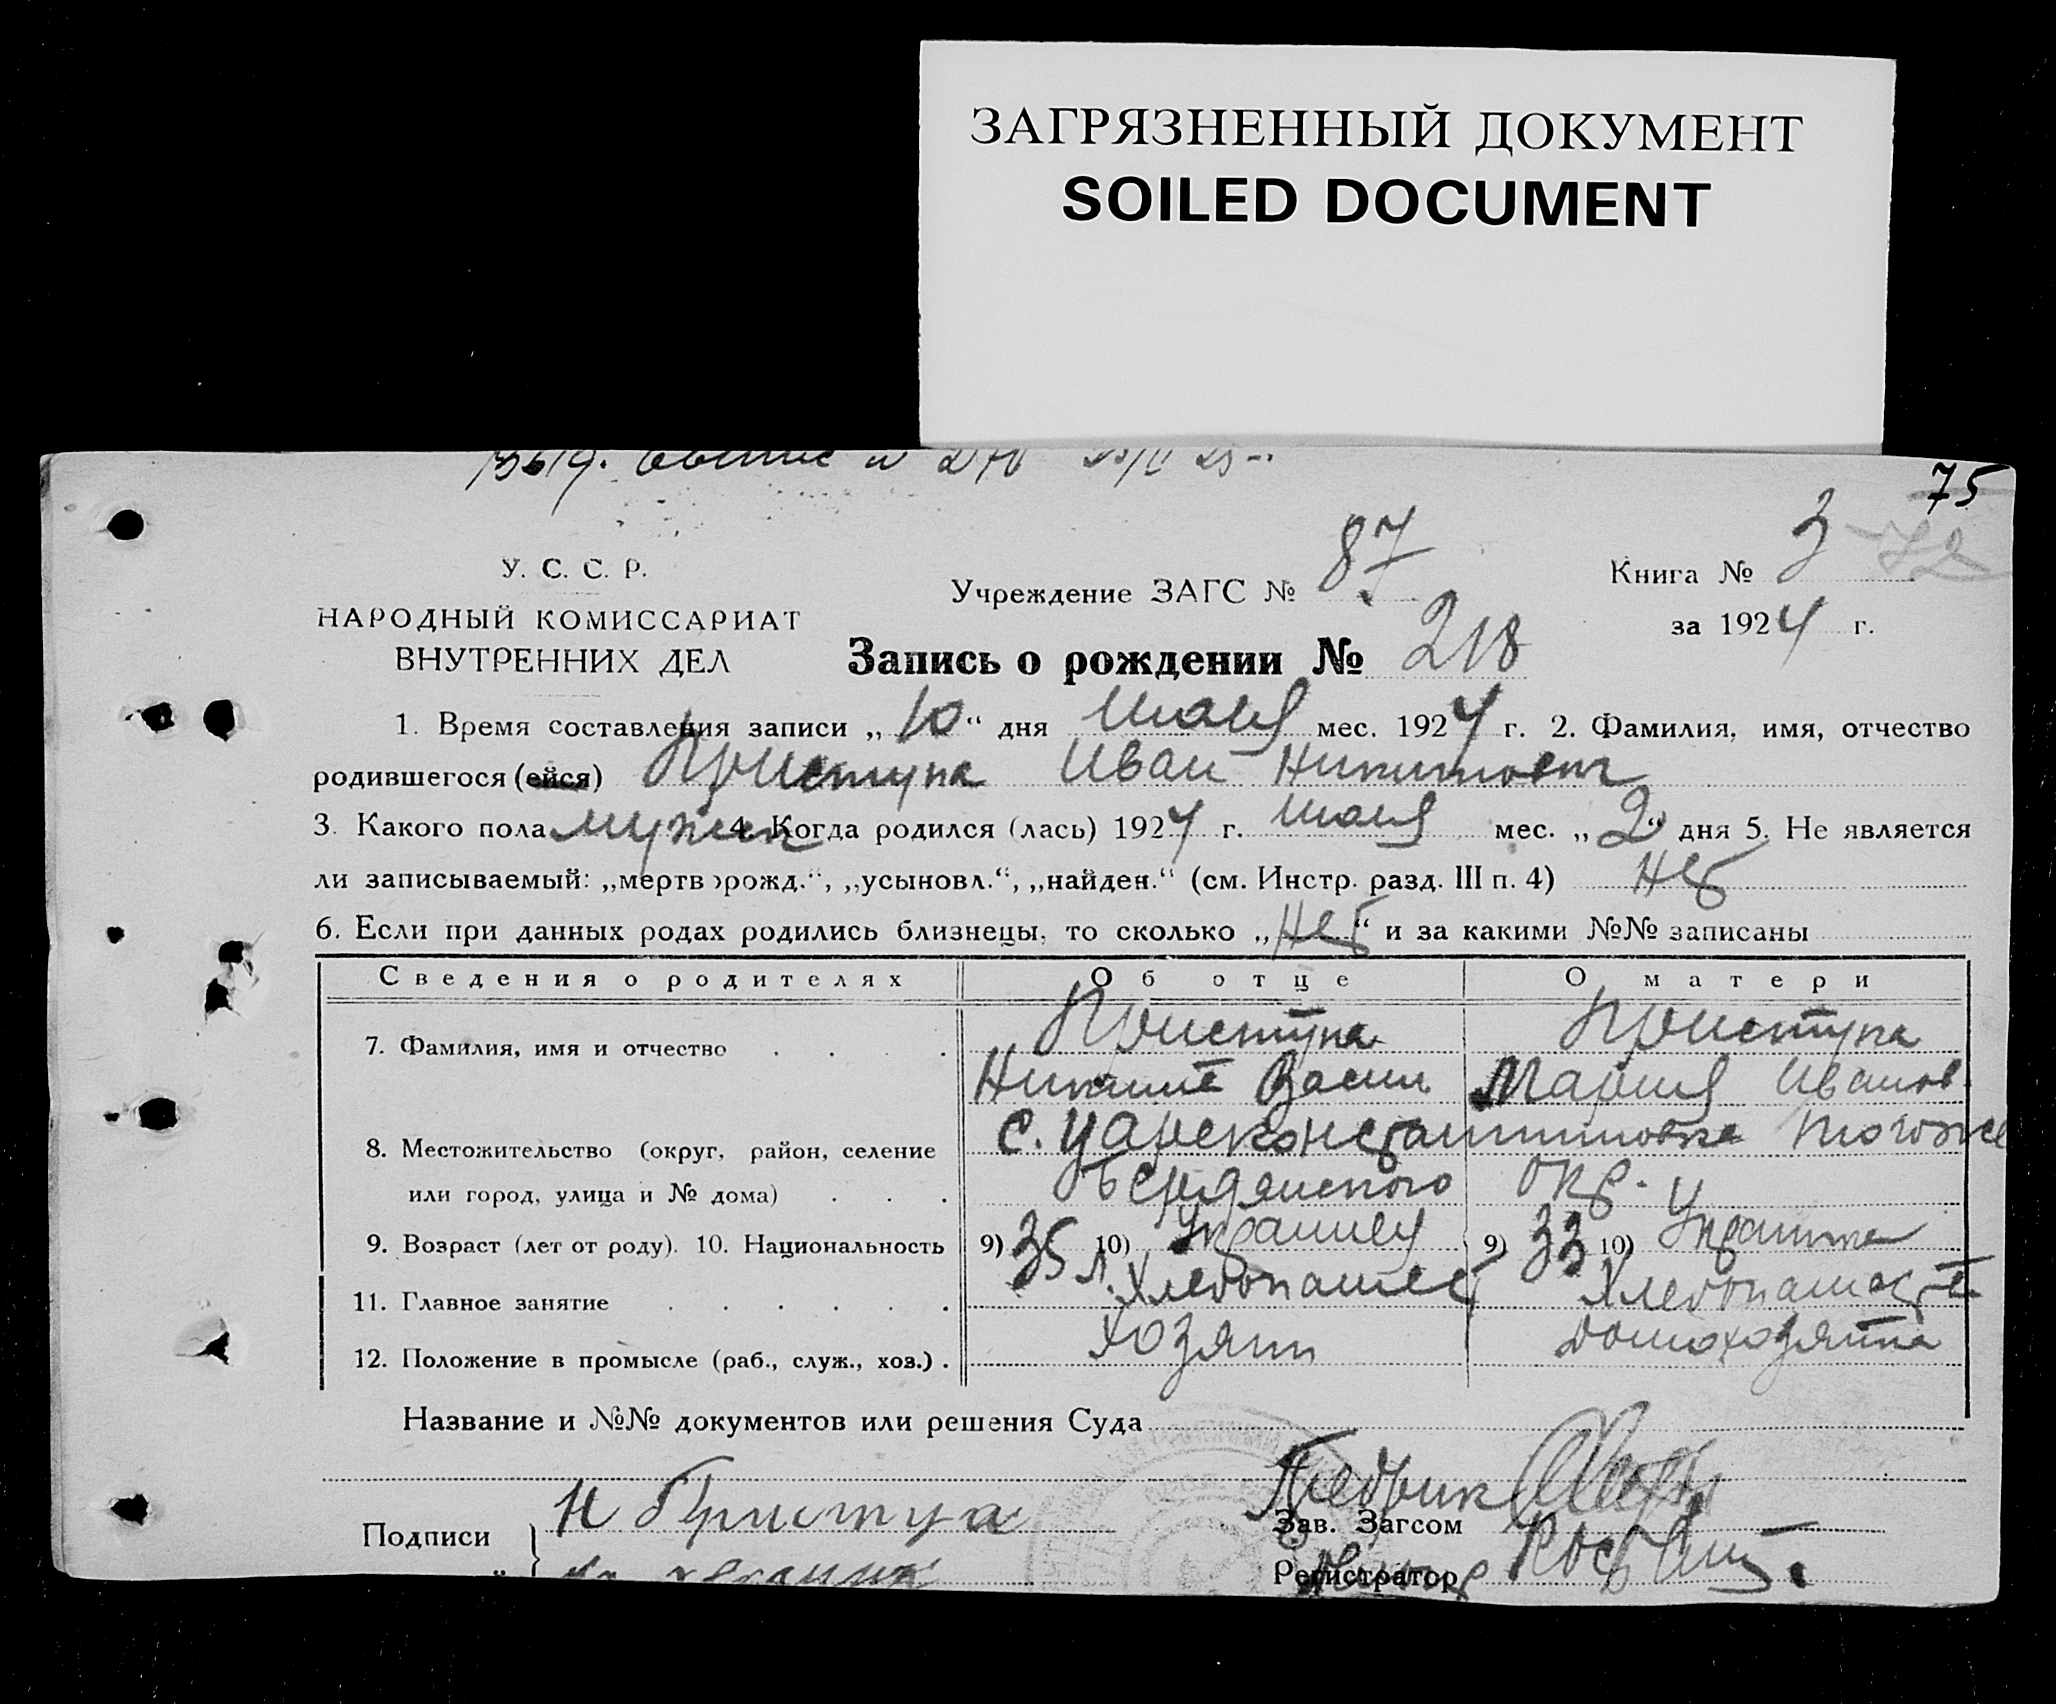 ЗАГРЯЗНЕННЫЙ ДОКУМЕНТ
SOILED DOCUMENT
75
72
У. С. С. Р.
НАРОДНЫЙ КОМИССАРИАТ
ВНУТРЕННИХ ДЕЛ
Учреждение ЗАГС № 87
Книга № 3
за 1924 г.
Запись о рождении № 218
1. Время составления записи „10“ дня июля мес. 1924 г. 2. Фамилия, имя, отчество
родившегося (ейся) Приступа Иван Никитович
3. Какого пола мужск 4. Когда родился (лась) 1924 г. июля мес. „2“ дня 5. Не является
ли записываемый: „мертворожд.“, „усыновл.“, „найден.“ (см. Инстр. разд. III п. 4) нет
6. Если при данных родах родились близнецы, то сколько „нет“ и за какими №№ записаны
Сведения о родителях Об отце О матери
7. Фамилия, имя и отчество Приступа Приступа
Никита Васил Мария Иванов
8. Местожительство (округ, район, селение с. Цареконстантиновка тогоже
или город, улица и № дома) Бердянского окр.
9. Возраст (лет от роду). 10. Национальность 9) 35 л. 10) Украинец 9) 33 10) Украинка
11. Главное занятие Хлебопашест Хлебопашест
12. Положение в промысле (раб., служ., хоз.) хозяин домохозяйка
Название и №№ документов или решения Суда
Подписи Н Приступа
Зав. Загсом
Регистратор